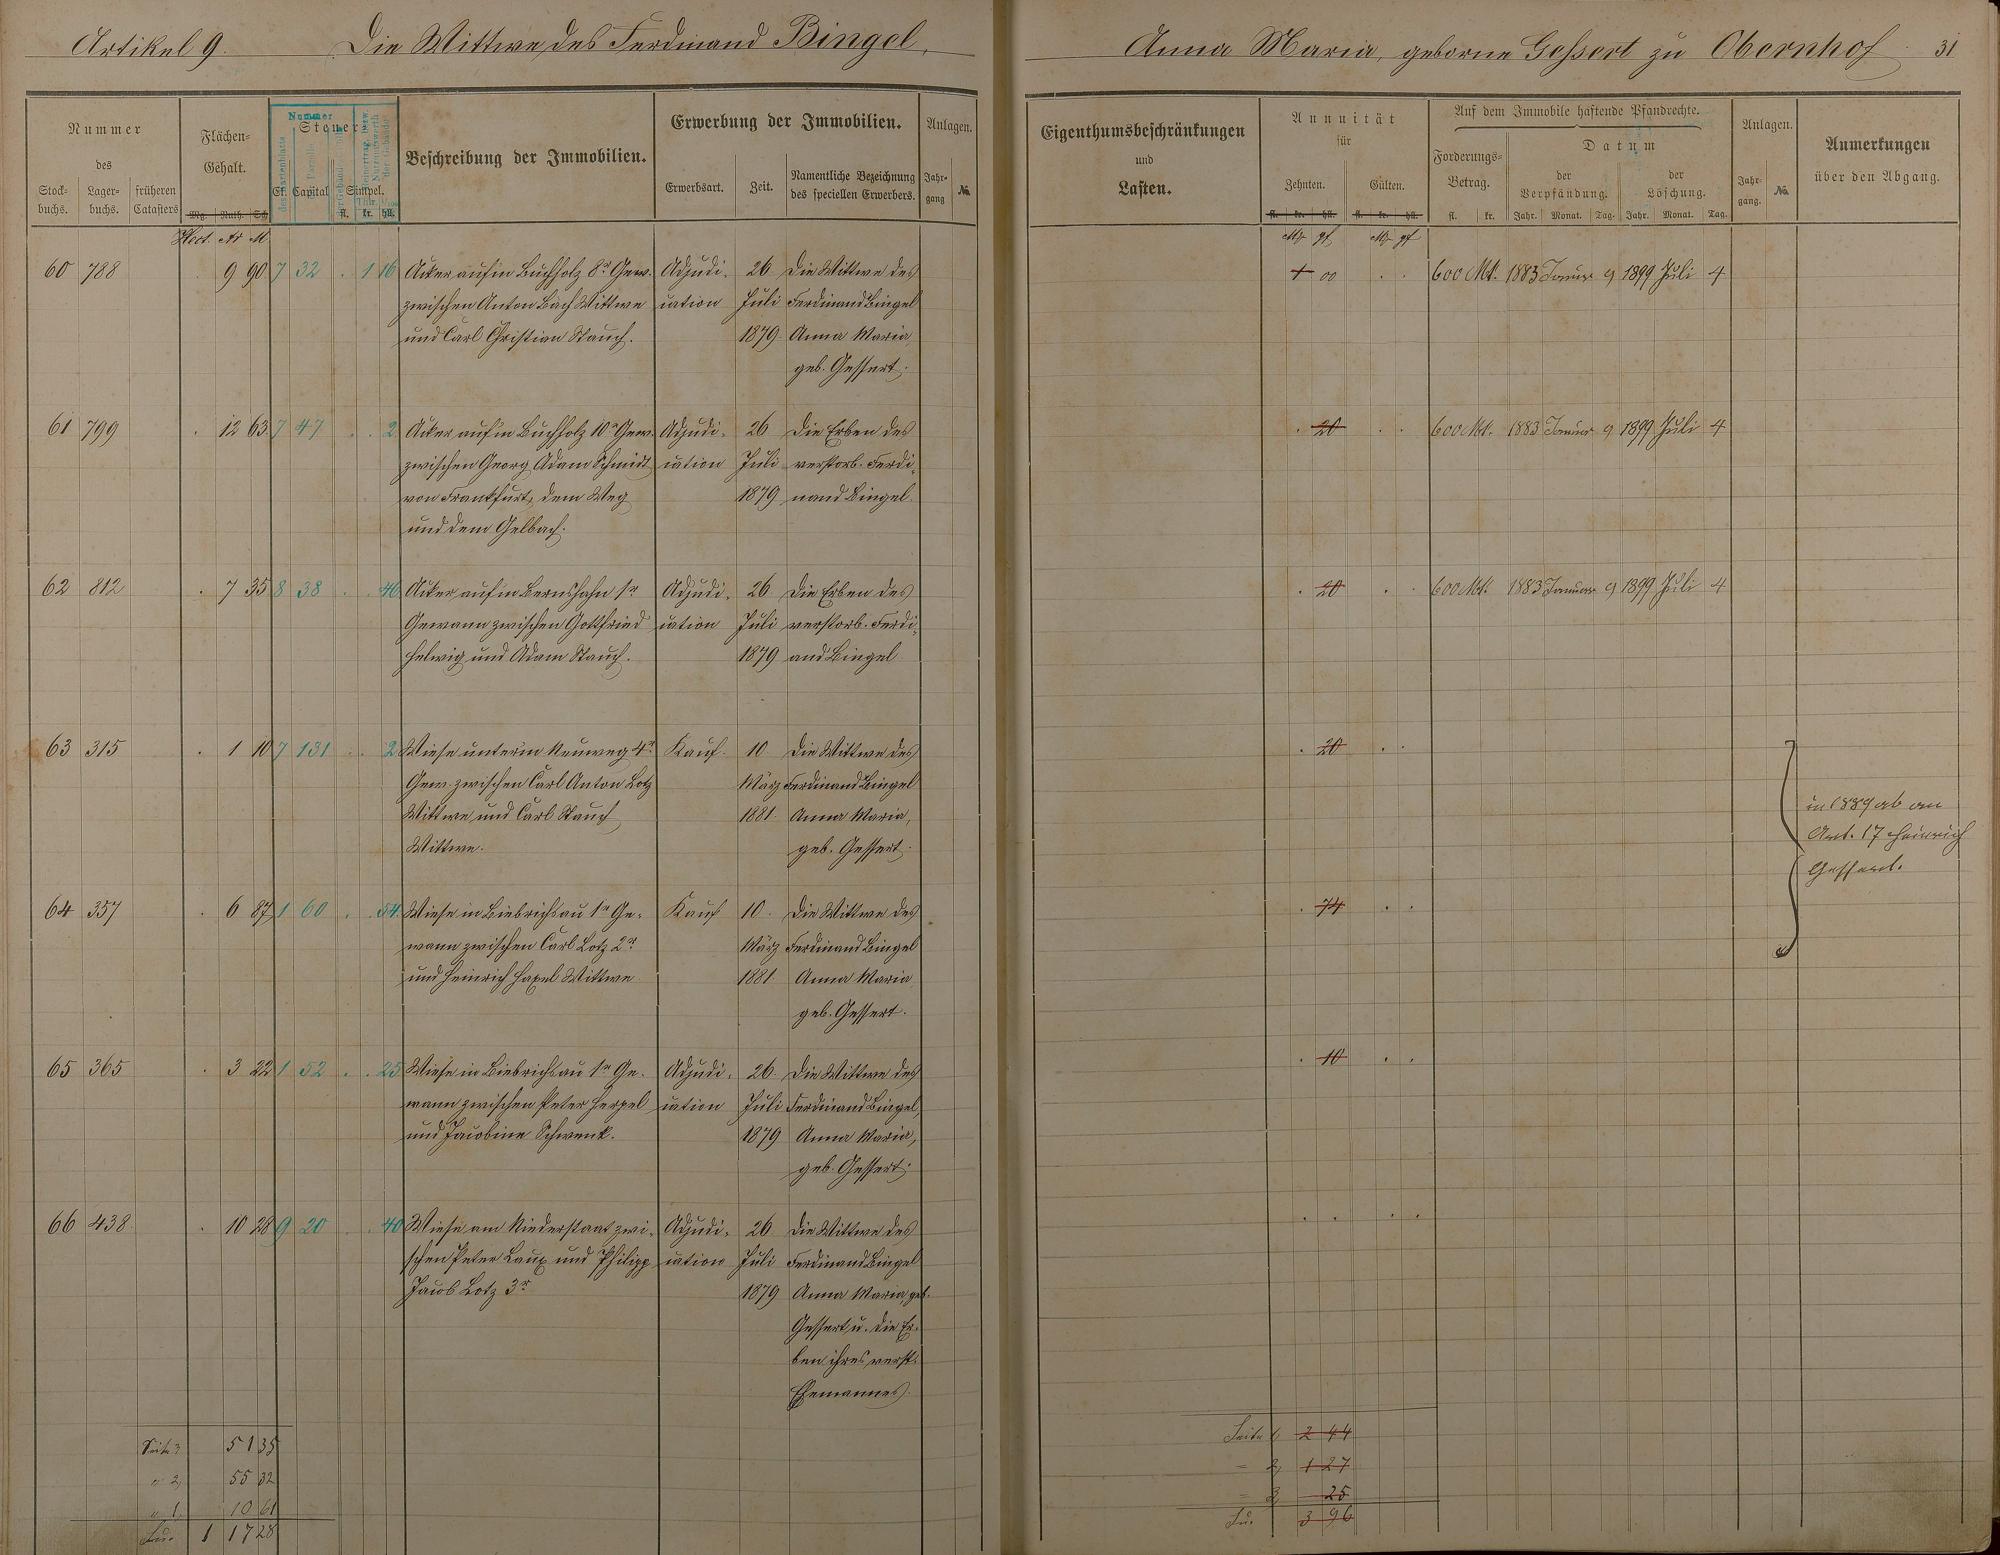 Artikel 9. Die Wittwe des Ferdinand Bingel,
Nummer
des
Stock-
buchs.
Lager-
buchs.
früheren
Catasters
Flächen-
Gehalt.
Mg. Ruth. Sch
Hect. Ar M
Nummer
Steuer-
Cl. Capital Simpel.
fl. kr. hll.
Beschreibung der Immobilien.
Erwerbung der Immobilien.
Erwerbsart.
Zeit.
Namentliche Bezeichnung
des speciellen Erwerbers.
Anlagen.
Jahr-
gang
No.
60 788 9 90 7 32 . 1 16 Acker auf'm Buchholz 8r Gew. Adjudi- 26 Die Wittwe des
zwischen Anton Bach Wittwe cation Juli Ferdinand Bingel
und Carl Christian Stauch. 1879 Anna Maria
geb. Gessert.
61 799 . 12 63 7 47 . . 2 Acker auf'm Buchholz 10r Gew. Adjudi- 26 Die Erben des
zwischen Georg Adam Schmidt cation Juli verstorb. Ferdi-
von Frankfurt, dem Weg 1879 nand Bingel.
und dem Gelbach.
62 812 . 7 35 8 38 . . 46 Acker auf'm Bernshahn 1r Adjudi- 26 Die Erben des
Gewann zwischen Gottfried cation Juli verstorb. Ferdi-
Helwig und Adam Stauch. 1879 and Bingel
63 315 . 1 10 7 131 . . 2 Wiese unterm Neuweg 4r Kauf. 10 Die Wittwe des
Gew. zwischen Carl Anton Lotz März Ferdinand Bingel
Wittwe und Carl Stauch 1881. Anna Maria,
Wittwe. geb. Gessert.
64 357 . 6 87 1 60 . . 54 Wiese in Biebrichsau 1r Ge- Kauf 10. Die Wittwe des
wann zwischen Carl Lotz 2r März Ferdinand Bingel
und Heinrich Haxel Wittwe 1881 Anna Maria
geb. Gessert.
65 365 . 3 22 1 52 . . 25 Wiese in Biebrichsau 1r Ge- Adjudi- 26 Die Wittwe des
wann zwischen Peter Herpel cation Juli Ferdinand Bingel,
und Jacobine Schwenk. 1879 Anna Maria,
geb. Gessert.
66 438 . 10 28 9 20 . . 40 Wiese am Niederstaat zwi- Adjudi- 26 Die Wittwe des
schen Peter Laux und Philipp cation Juli Ferdinand Bingel
Jacob Lotz 3r 1879 Anna Maria, geb.
Gessert, u. die Er-
ben ihres verst.
Ehemannes.
Seite 3 51 35
" 2, 55 32
" 1, 10 61
Su. 1 17 28
Anna Maria, geborne Gessert zu Obernhof 31
Eigenthumsbeschränkungen
und
Lasten.
Annuität
für
Zehnten. Gülten.
fl. kr. hll. fl. kr. hll.
Mk pf Mk pf
Auf dem Immobile haftende Pfandrechte.
Forderungs-
Betrag.
fl. kr.
Datum
der
Verpfändung.
der
Löschung.
Jahr. Monat. Tag. Jahr. Monat. Tag.
Anlagen.
Jahr-
gang.
No.
Anmerkungen
über den Abgang.
1 00 . . 600 Mk. 1883 Januar 9 1899 Juli 4
. 20 . . 600 Mk. 1883 Januar 9 1899 Juli 4
. 20 . . 600 Mk. 1883 Januar 9 1899 Juli 4
. 20 . .
in 1889 ab an
Art. 17 Heinrich
Gessert.
. 74 . .
. 10 . .
. . . .
Seite 1, 2 44
= 2, 1 27
= 3, 25
Su. 3 96